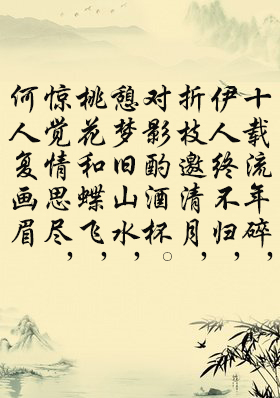 十载流年碎，
伊人终不归，
折枝邀清月，
对影酌酒杯。
憩梦旧山水，
桃花和蝶飞，
惊觉情思尽，
何人复画眉